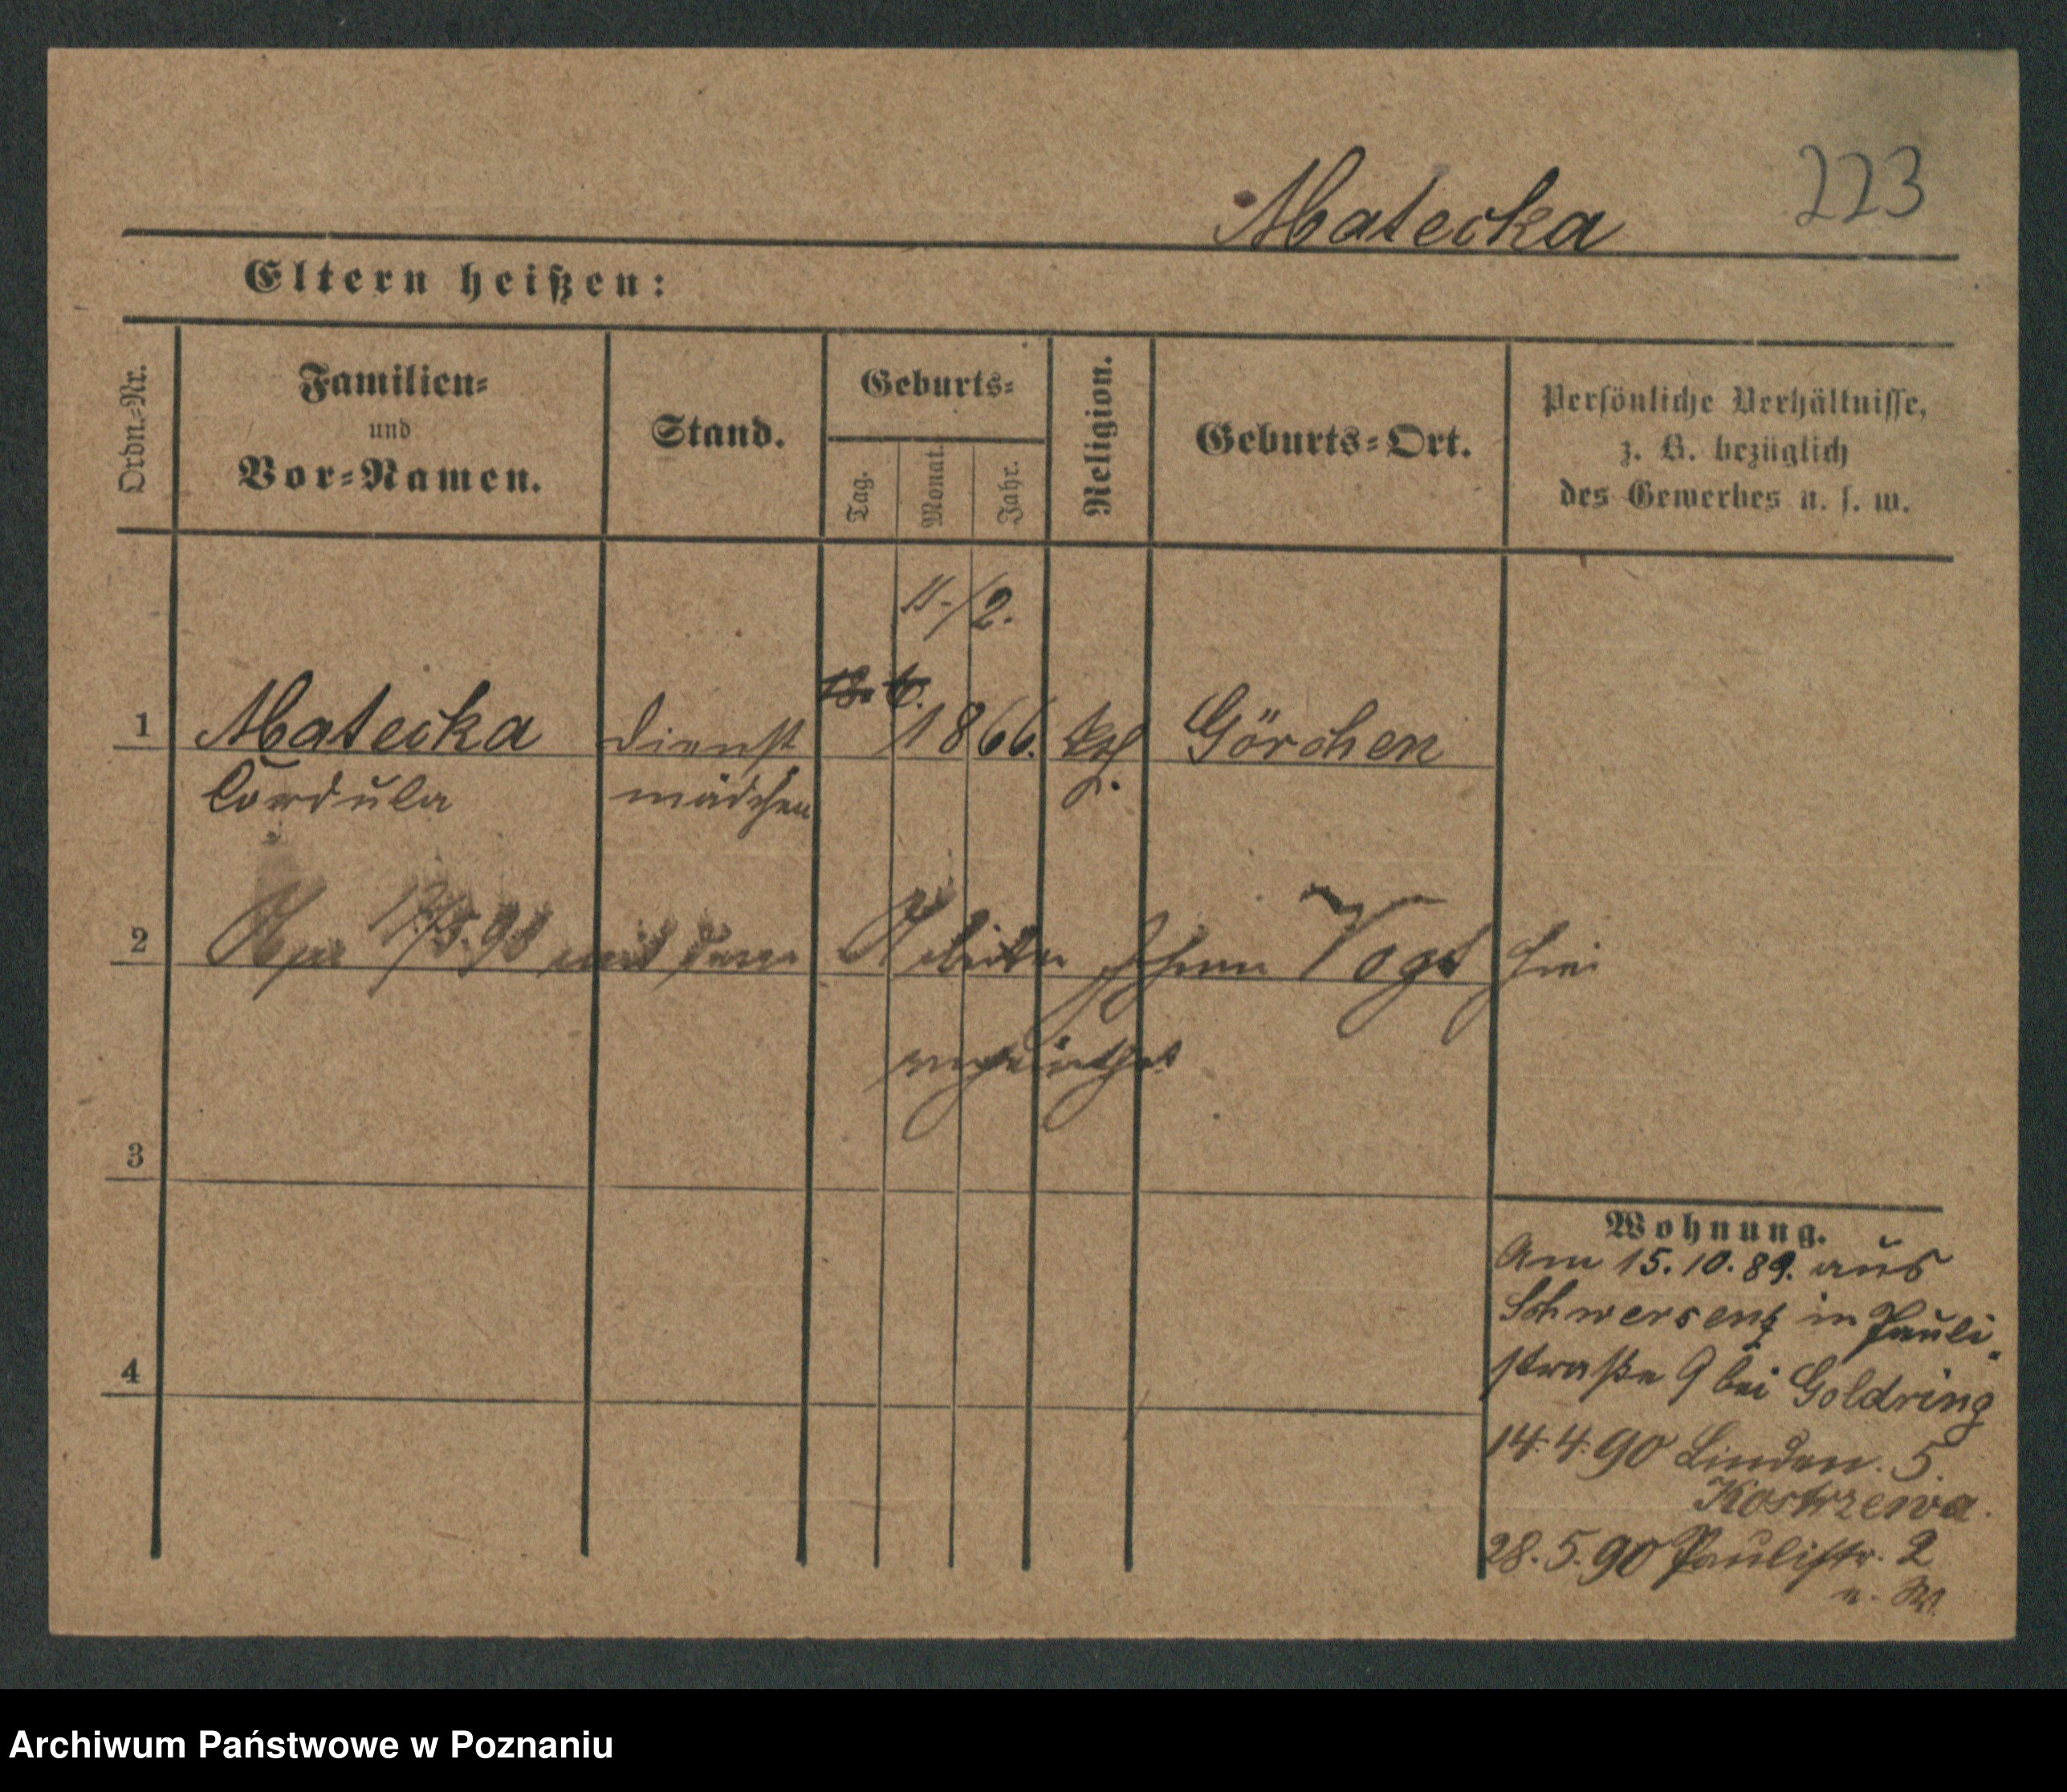 Matecka 223
Eltern heißen:
Ordn.-Nr.
Familien-
und
Vor-Namen.
Stand.
Geburts-
Tag.
Monat.
Jahr.
Religion.
Geburts-Ort.
Persönliche Verhältnisse,
z. B. bezüglich
des Gewerbes u. s. w.
11./2.
1 Matecka Dienst 1866. kth. Görchen
Cordula mädchen
2 mit dem Arbeiter Johann Vogt hier
verheirathet
3
4
Wohnung.
Am 15.10.89. aus
Schwersenz in Pauli
straße 9 bei Goldring
14.4.90 Linden. 5.
Kostrzewa.
28.5.90 Paulistr. 2
Archiwum Państwowe w Poznaniu